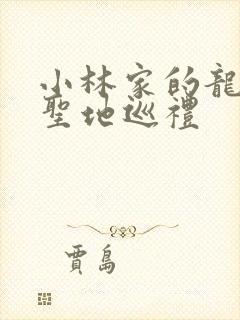 小林家的龍
聖地巡禮
賈島